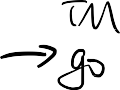 TM
→ go